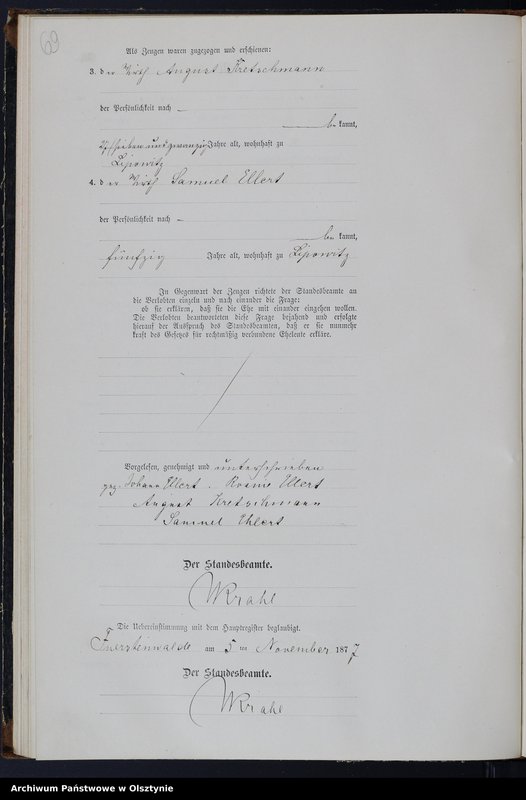 69
Als Zeugen waren zugezogen und erschienen:
3. der Wirth August Kretschmann
der Persönlichkeit nach —
be kannt,
siebenundzwanzig Jahre alt, wohnhaft zu
Lipowitz
4. der Wirth Samuel Ellert
der Persönlichkeit nach —
be kannt,
fünfzig Jahre alt, wohnhaft zu Lipowitz
In Gegenwart der Zeugen richtete der Standesbeamte an
die Verlobten einzeln und nach einander die Frage:
ob sie erklären, daß sie die Ehe mit einander eingehen wollen.
Die Verlobten beantworteten diese Frage bejahend und erfolgte
hierauf der Ausspruch des Standesbeamten, daß er sie nunmehr
kraft des Gesetzes für rechtmäßig verbundene Eheleute erkläre.
Vorgelesen, genehmigt und unterschrieben
gez. Johann Ellert. Rosine Ellert
August Kretschmann
Samuel Ehlert
Der Standesbeamte.
WKrahl
Die Uebereinstimmung mit dem Hauptregister beglaubigt.
Fuerstenwalde am 5 ten November 1877
Der Standesbeamte.
WKrahl
Archiwum Państwowe w Olsztynie